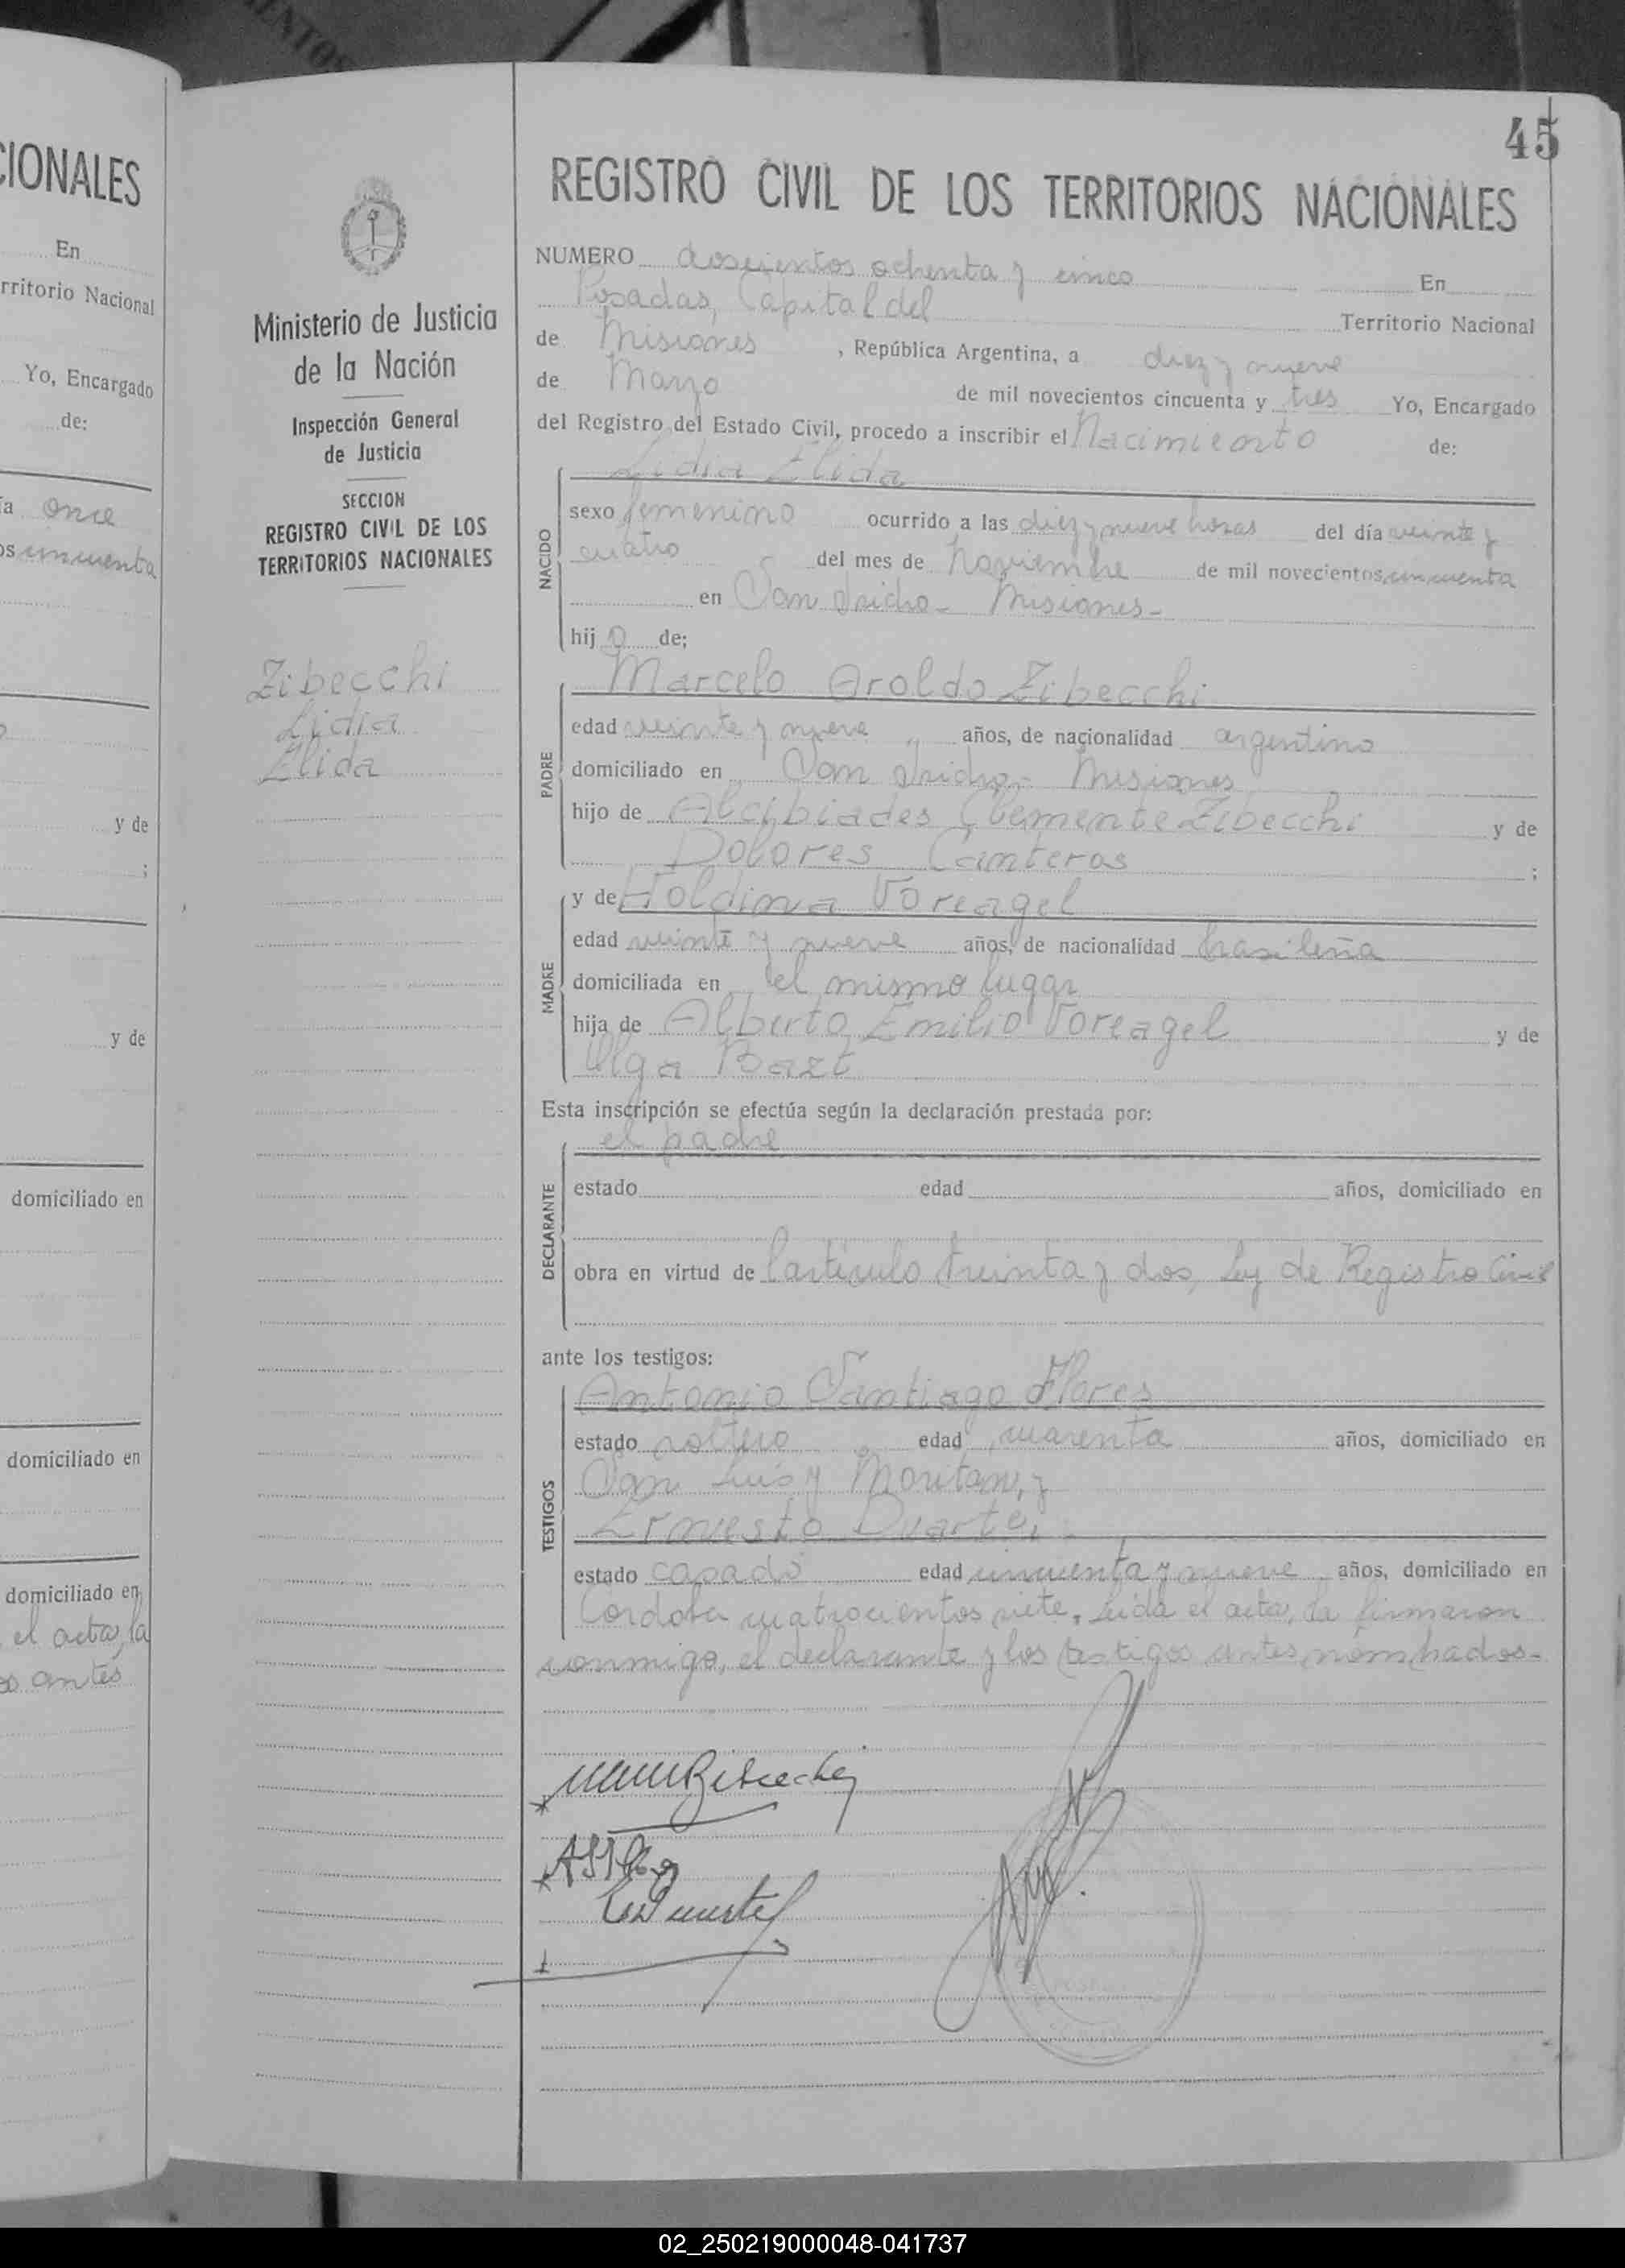 45
REGISTRO CIVIL DE LOS TERRITORIOS NACIONALES
NUMERO doscientos ochenta y cinco En
Posadas, Capital del Territorio Nacional
de Misiones , República Argentina, a diez y nueve
de Marzo de mil novecientos cincuenta y tres Yo, Encargado
del Registro del Estado Civil, procedo a inscribir el Nacimiento de:
Lidia Elida
NACIDO
sexo femenino ocurrido a las diez y nueve horas del día veinte y
cuatro del mes de Noviembre de mil novecientos cincuenta
en San Isidro - Misiones -
hij a de;
Marcelo Aroldo Zibecchi
PADRE
edad veinte y nueve años, de nacionalidad argentino
domiciliado en San Isidro - Misiones
hijo de Alcibiades Clemente Zibecchi y de
Dolores Canteros ;
y de Holdina Voreagel
MADRE
edad veinte y nueve años, de nacionalidad brasileña
domiciliada en el mismo lugar
hija de Alberto Emilio Voreagel y de
Olga Bazt
Esta inscripción se efectúa según la declaración prestada por:
el padre
DECLARANTE
estado edad años, domiciliado en
obra en virtud de l'artículo treinta y dos, Ley de Registro Civil
ante los testigos:
Antonio Santiago Flores
TESTIGOS
estado soltero edad cuarenta años, domiciliado en
San Luis y
Ernesto Duarte,
estado casado edad cincuenta y nueve años, domiciliado en
Cordoba cuatrocientos siete. Leída el acta, la firmaron
conmigo, el declarante y los testigos antes nombrados-
Ministerio de Justicia
de la Nación
Inspección General
de Justicia
SECCION
REGISTRO CIVIL DE LOS
TERRITORIOS NACIONALES
Zibecchi
Lidia
Elida
CIONALES
En
rritorio Nacional
Yo, Encargado
de:
ía once
os cincuenta
y de
;
y de
domiciliado en
domiciliado en
domiciliado en
el acta, la
os antes
02_250219000048-041737